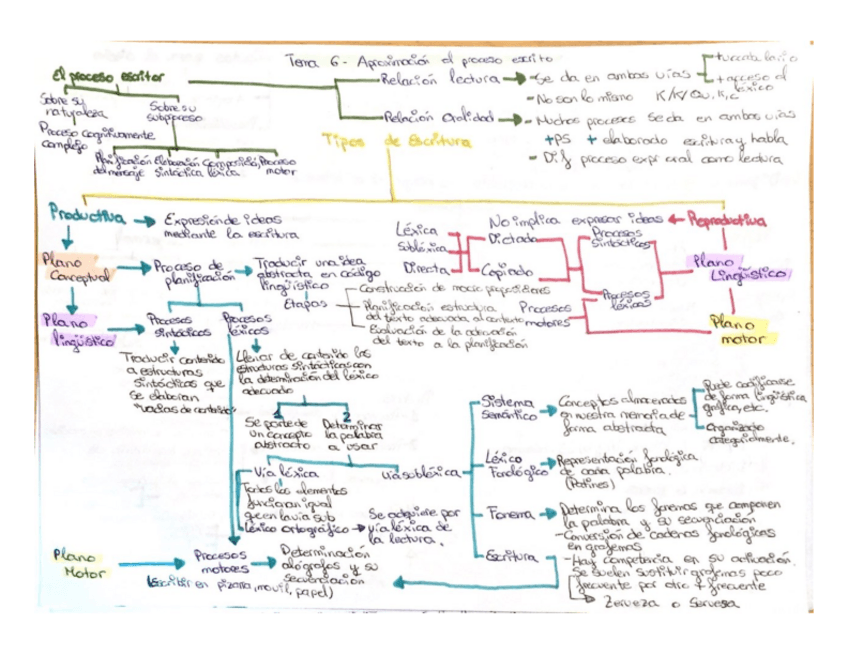 Tema 6 - Aproximación al proceso escrito
El proceso escritor
Relación lectura
-Se da en ambos vías
+vocabulario
+acceso al
léxico
-No son lo mismo K/K/Qu, K, C
Sobre su
naturaleza
Proceso cognitivamente
complejo
Sobre su
subproceso
Planificación
del mensaje
Elaboración
Sintáctica
Composición
léxica
Proceso
motor
Relación Oralidad
- Muchos procesos se da en ambas vías
+PS + elaborado escritura y habla
- Dif proceso expr oral como lectura
Tipos de Escritura
Productiva
Expresión de ideas
mediante la escritura
No implica expresar ideas
Reproductiva
Plano
Conceptual
Proceso de
planificación
Traducir una idea
abstracta en código
lingüístico
Etapas
Construcción de macro proposiciones
Planificación estructura
del texto adecuada al contexto
Evaluación de la adecuación
del texto a la planificación
Léxica
Subléxica
Directa
Dictado
Copiado
Procesos
Sintácticos
Procesos
léxicos
Procesos
motores
Plano
Lingüístico
Plano
motor
Plano
lingüístico
Procesos
sintácticos
Traducir contenido
a estructuras
sintácticas que
se elaboran
"vacías de contenido"
Procesos
léxicos
Llenar de contenido las
estructuras sintácticas con
la determinación del léxico
adecuado
1
Se parte de
un concepto
abstracto
2
Determinar
la palabra
a usar
Vía léxica
Todos los elementos
funcionan igual
que en la vía sub
Léxico ortográfico
Se adquiere por
vía léxica de
la lectura.
vía subléxica
Sistema
semántico
Conceptos almacenados
en nuestra memoria de
forma abstracta
Puede codificarse
de forma lingüística
gráfica, etc.
Organizado
categorialmente.
Léxico
Fonológico
Representación fonológica
de cada palabra.
(Patines)
Fonema
Determina los fonemas que componen
la palabra y su secuenciación
-Conversión de cadenas fonológicas
en grafemas
Escritura
-Hay competencia en su activación.
Se suelen sustituir grafemas poco
frecuente por otro + frecuente
Zerveza o Servesa
Plano
Motor
Procesos
motores
Determinación
alógrafos y su
secuenciación
(escribir en pizarra, movil, papel)